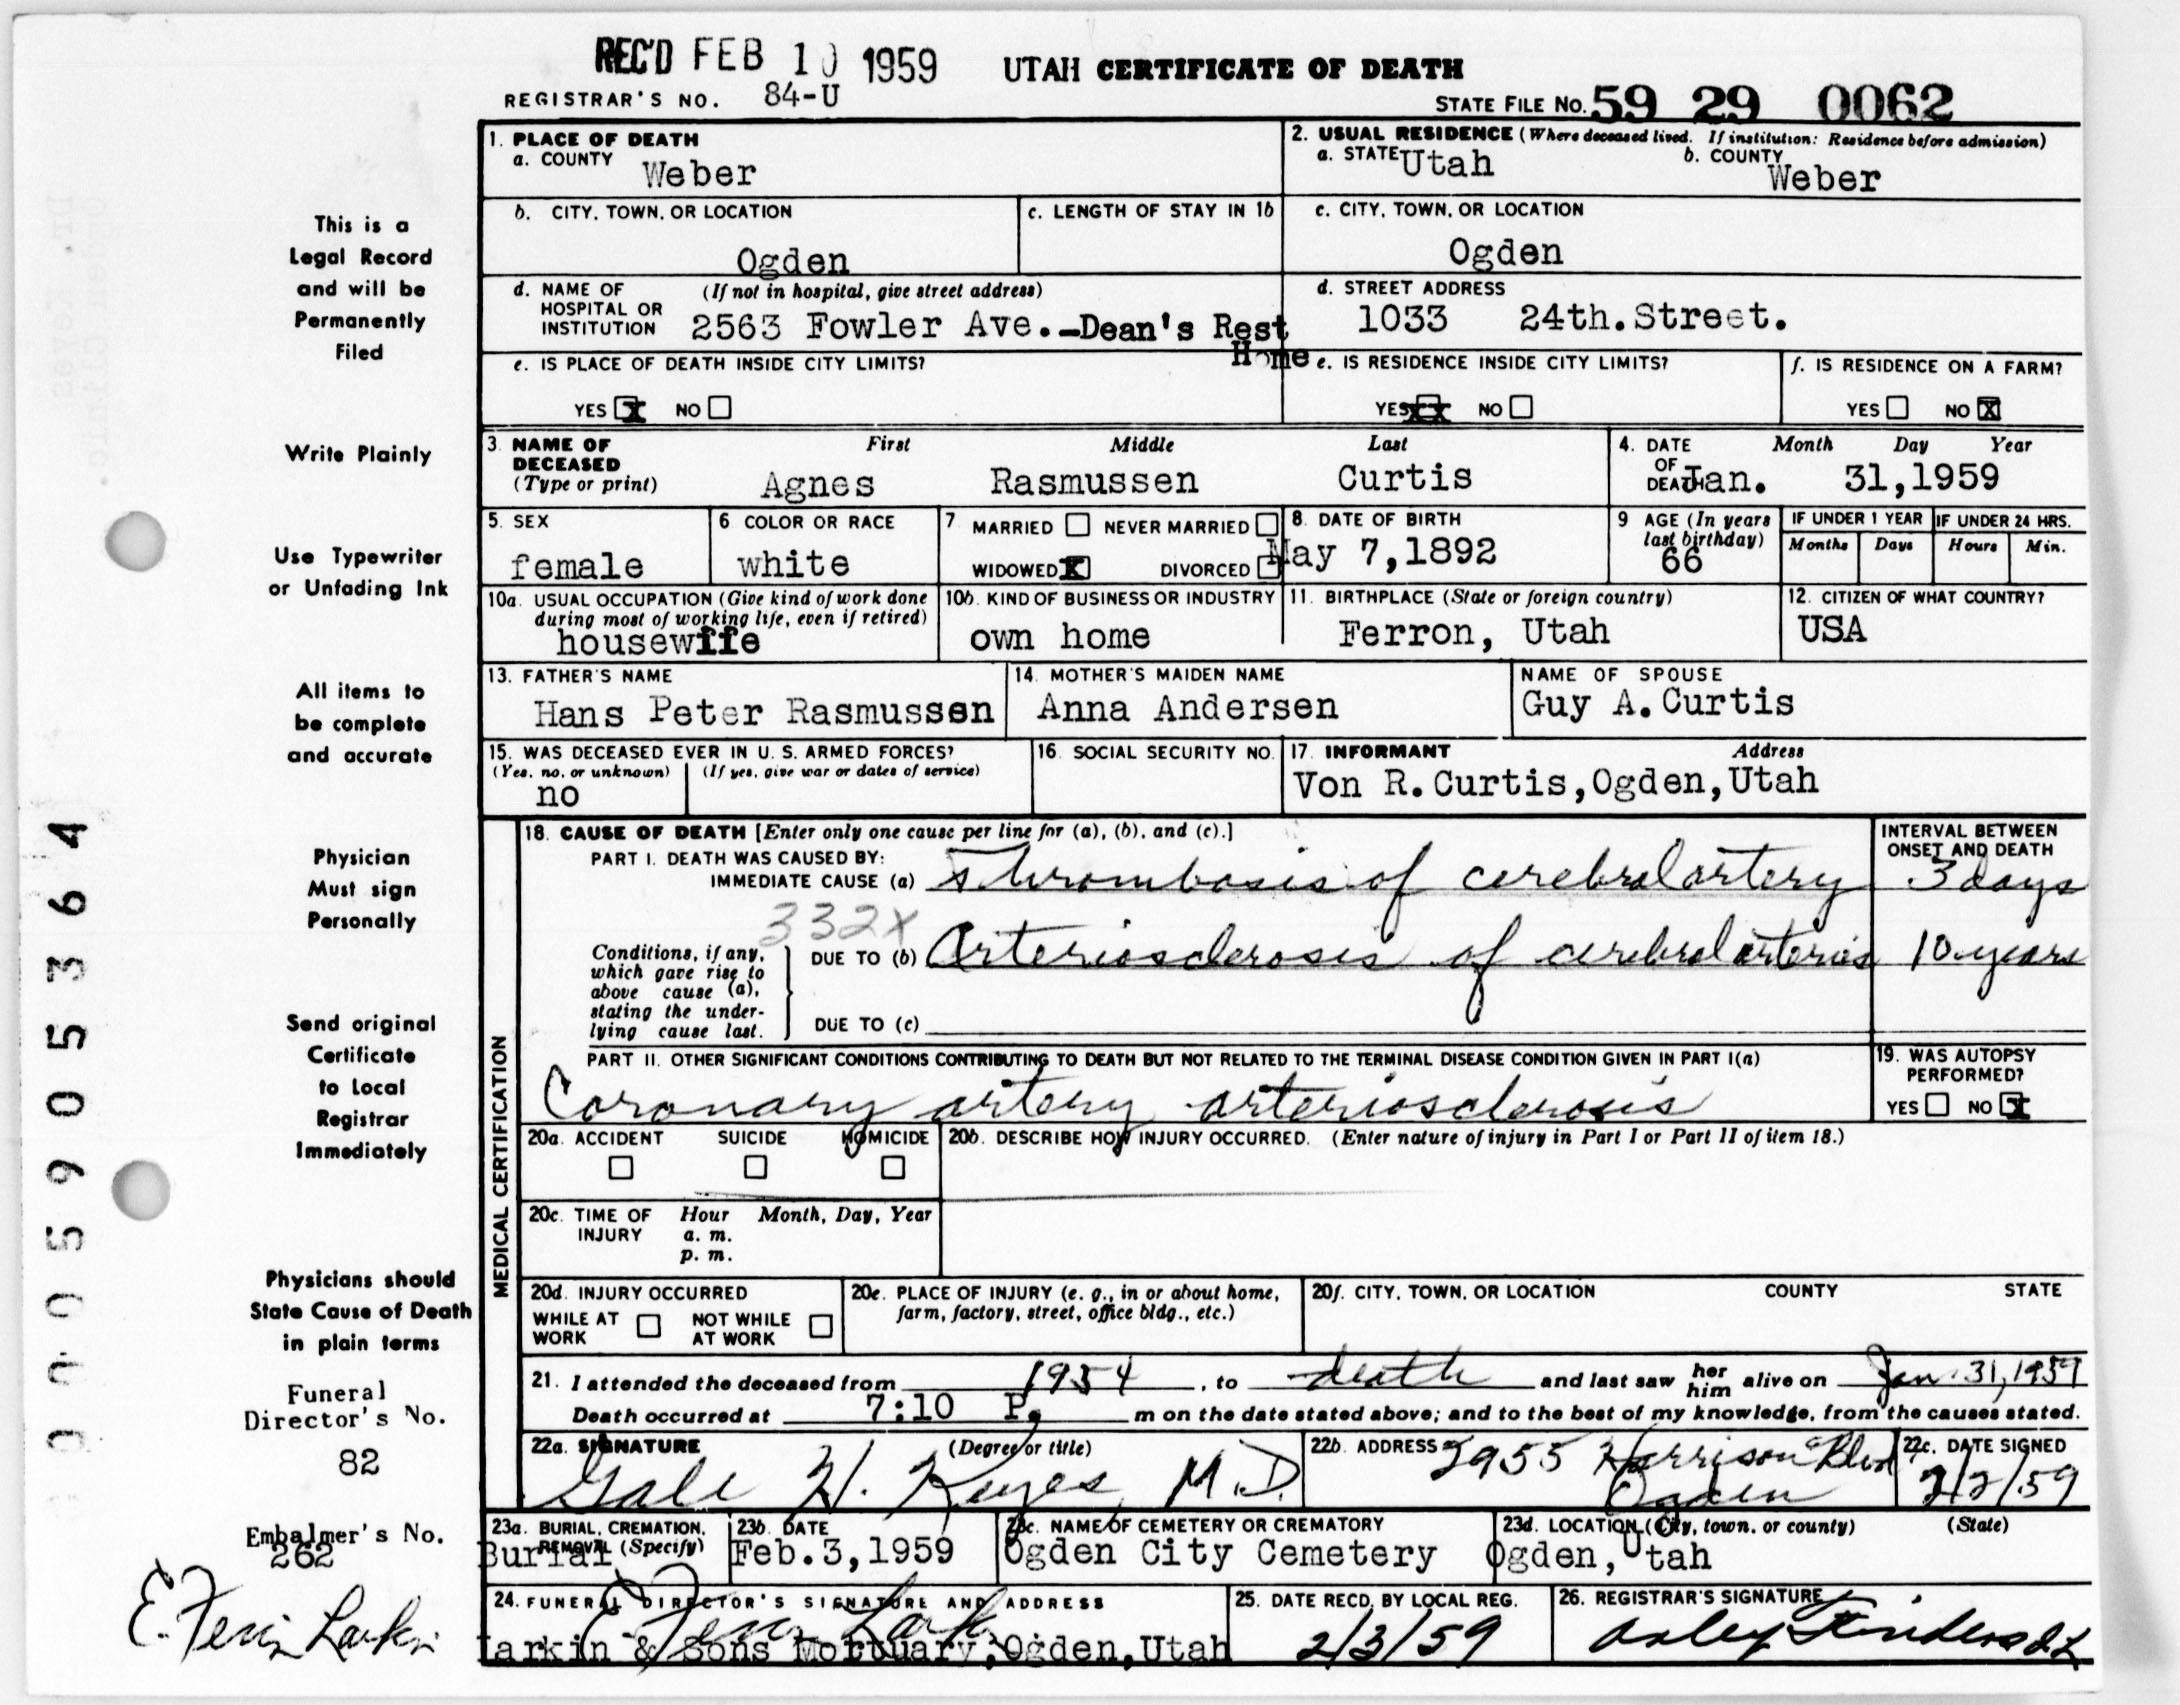 REC'D FEB 10 1959 UTAH CERTIFICATE OF DEATH
REGISTRAR'S NO. 84-U STATE FILE NO. 59 29 0062
1. PLACE OF DEATH
a. COUNTY Weber
2. USUAL RESIDENCE (Where deceased lived. If institution: Residence before admission)
a. STATE Utah b. COUNTY Weber
b. CITY, TOWN, OR LOCATION Ogden
c. LENGTH OF STAY IN 1b
c. CITY, TOWN, OR LOCATION Ogden
d. NAME OF HOSPITAL OR INSTITUTION (If not in hospital, give street address) 2563 Fowler Ave.-Dean's Rest Home
d. STREET ADDRESS 1033 24th.Street.
e. IS PLACE OF DEATH INSIDE CITY LIMITS? YES X NO
e. IS RESIDENCE INSIDE CITY LIMITS? YES XX NO
f. IS RESIDENCE ON A FARM? YES NO X
3. NAME OF DECEASED (Type or print) First Middle Last
Agnes Rasmussen Curtis
4. DATE OF DEATH Month Day Year
Jan. 31,1959
5. SEX female
6 COLOR OR RACE white
7. MARRIED NEVER MARRIED WIDOWED X DIVORCED
8. DATE OF BIRTH May 7,1892
9 AGE (In years last birthday) 66
IF UNDER 1 YEAR Months Days
IF UNDER 24 HRS. Hours Min.
10a. USUAL OCCUPATION (Give kind of work done during most of working life, even if retired) housewife
10b. KIND OF BUSINESS OR INDUSTRY own home
11. BIRTHPLACE (State or foreign country) Ferron, Utah
12. CITIZEN OF WHAT COUNTRY? USA
13. FATHER'S NAME Hans Peter Rasmussen
14. MOTHER'S MAIDEN NAME Anna Andersen
NAME OF SPOUSE Guy A.Curtis
15. WAS DECEASED EVER IN U. S. ARMED FORCES?
(Yes, no, or unknown) (If yes, give war or dates of service)
no
16. SOCIAL SECURITY NO.
17. INFORMANT Address
Von R.Curtis,Ogden,Utah
MEDICAL CERTIFICATION
18. CAUSE OF DEATH [Enter only one cause per line for (a), (b), and (c).]
INTERVAL BETWEEN ONSET AND DEATH
PART I. DEATH WAS CAUSED BY:
IMMEDIATE CAUSE (a) Thrombosis of cerebral artery 3 days
332X
Conditions, if any, which gave rise to above cause (a), stating the underlying cause last.
DUE TO (b) Arteriosclerosis of cerebral arteries 10 years
DUE TO (c)
PART II. OTHER SIGNIFICANT CONDITIONS CONTRIBUTING TO DEATH BUT NOT RELATED TO THE TERMINAL DISEASE CONDITION GIVEN IN PART I(a)
Coronary artery arteriosclerosis
19. WAS AUTOPSY PERFORMED? YES NO X
20a. ACCIDENT SUICIDE HOMICIDE
20b. DESCRIBE HOW INJURY OCCURRED. (Enter nature of injury in Part I or Part II of item 18.)
20c. TIME OF INJURY Hour Month, Day, Year
a. m.
p. m.
20d. INJURY OCCURRED
WHILE AT WORK NOT WHILE AT WORK
20e. PLACE OF INJURY (e. g., in or about home, farm, factory, street, office bldg., etc.)
20f. CITY, TOWN, OR LOCATION COUNTY STATE
21. I attended the deceased from 1954, to death and last saw her him alive on Jan. 31, 1959
Death occurred at 7:10 P. m on the date stated above; and to the best of my knowledge, from the causes stated.
22a. SIGNATURE (Degree or title)
Gale H. Keyes M.D.
22b. ADDRESS 2955 Harrison Blvd Ogden
22c. DATE SIGNED 2/2/59
23a. BURIAL, CREMATION, REMOVAL (Specify) Burial
23b. DATE Feb.3,1959
23c. NAME OF CEMETERY OR CREMATORY Ogden City Cemetery
23d. LOCATION (City, town, or county) (State)
Ogden,Utah
24. FUNERAL DIRECTOR'S SIGNATURE AND ADDRESS
E. Ferrin Larkin
Larkin & Sons Mortuary,Ogden,Utah
25. DATE RECD. BY LOCAL REG. 2/3/59
26. REGISTRAR'S SIGNATURE
This is a
Legal Record
and will be
Permanently
Filed
Write Plainly
Use Typewriter
or Unfading Ink
All items to
be complete
and accurate
Physician
Must sign
Personally
Send original
Certificate
to Local
Registrar
Immediately
Physicians should
State Cause of Death
in plain terms
Funeral
Director's No.
82
Embalmer's No.
262
E. Ferrin Larkin
005905364